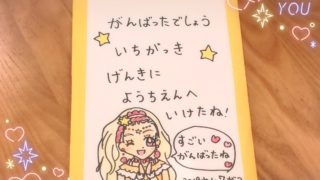 YOU
がんばったでしょう
いちがっき
げんきに
ようちえんへ
いけたね!
すごい
がんばったね